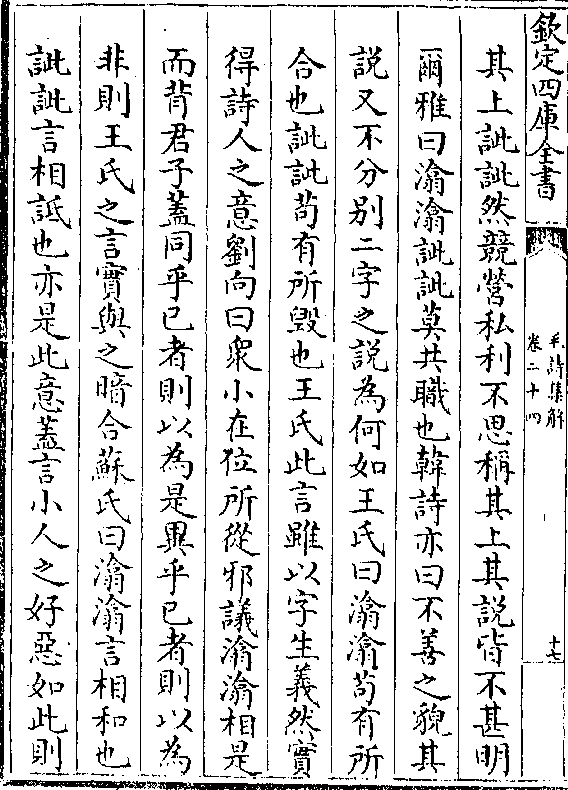 欽定四庫全書
毛詩集解
卷二十四
十七
其上訿訿然競營私利不思稱其上其說皆不甚明
爾雅曰潝潝訿訿莫共職也韓詩亦曰不善之貌其
說又不分别二字之說為何如王氏曰潝潝茍有所
合也訿訿茍有所毁也王氏此言雖以字生義然實
得詩人之意劉向曰衆小在位所從邪議潝潝相是
而背君子蓋同乎已者則以為是異乎已者則以為
非則王氏之言實與之暗合蘇氏曰潝潝言相和也
訿訿言相詆也亦是此意蓋言小人之好惡如此則